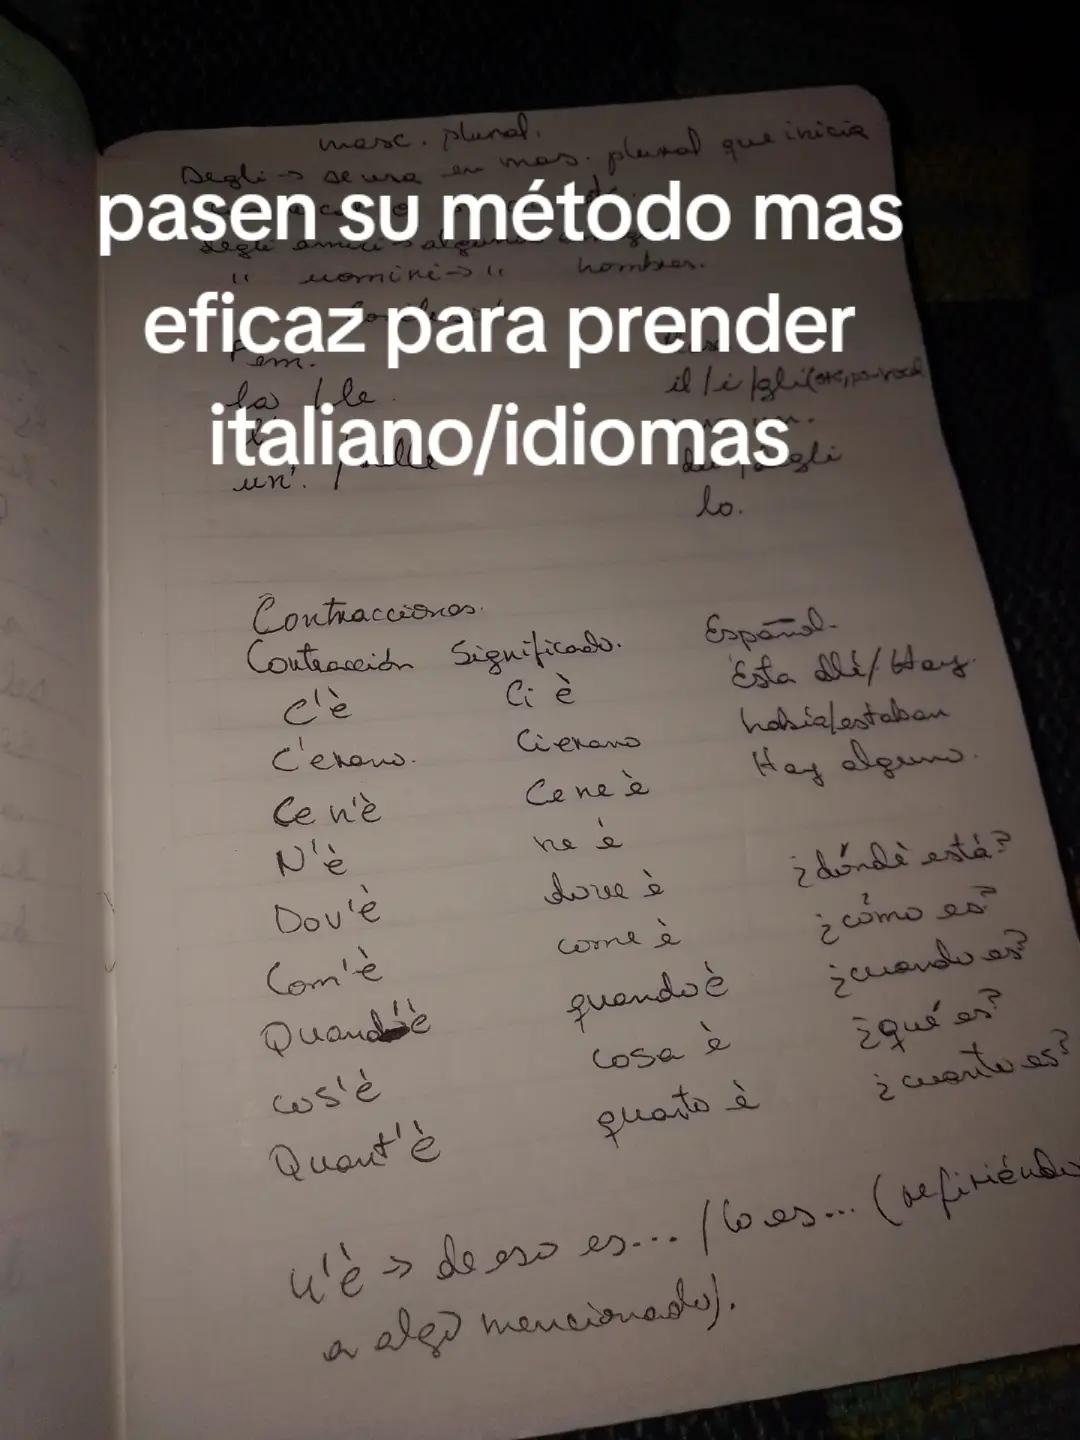 masc. plural.
Degli → se usa en mas. plural que inicia
pasen su método mas
eficaz para prender
italiano/idiomas
degli amici → algunos
" uomini → " hombres.
Fem.
la /le
il /i /gli
un'. /
degli
lo.
Contracciones.
Contracción Significado. Español.
C'è Ci è Esta allí/Hay.
C'erano. Ci erano había/estaban
Ce n'è Ce ne è Hay alguno.
N'è ne è
Dov'è dove è ¿dónde está?
Com'è come è ¿cómo es?
Quand'è quando è ¿cuando es?
cos'è cosa è ¿qué es?
Quant'è quato è ¿cuanto es?
n'è → de eso es... /lo es... (refiriéndo
a algo mencionado).